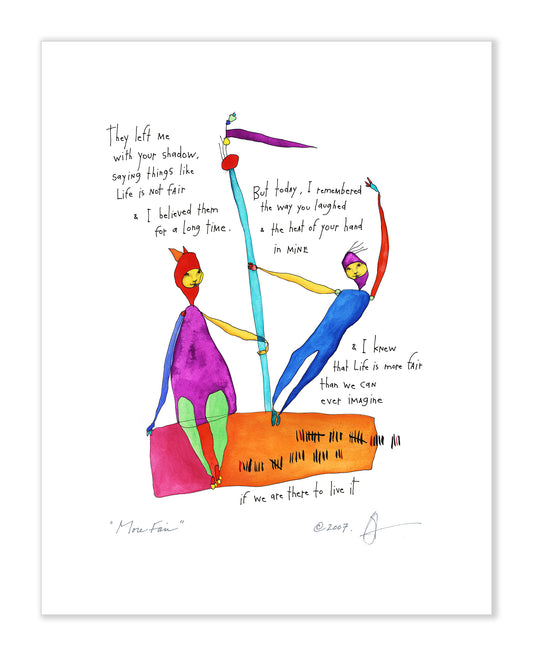 They left me
with your shadow,
saying things like
Life is not fair
& I believed them
for a long time.
But today, I remembered
the way you laughed
& the heat of your hand
in mine
& I knew
that Life is more fair
than we can
ever imagine
if we are there to live it
"More Fair"
© 2007.